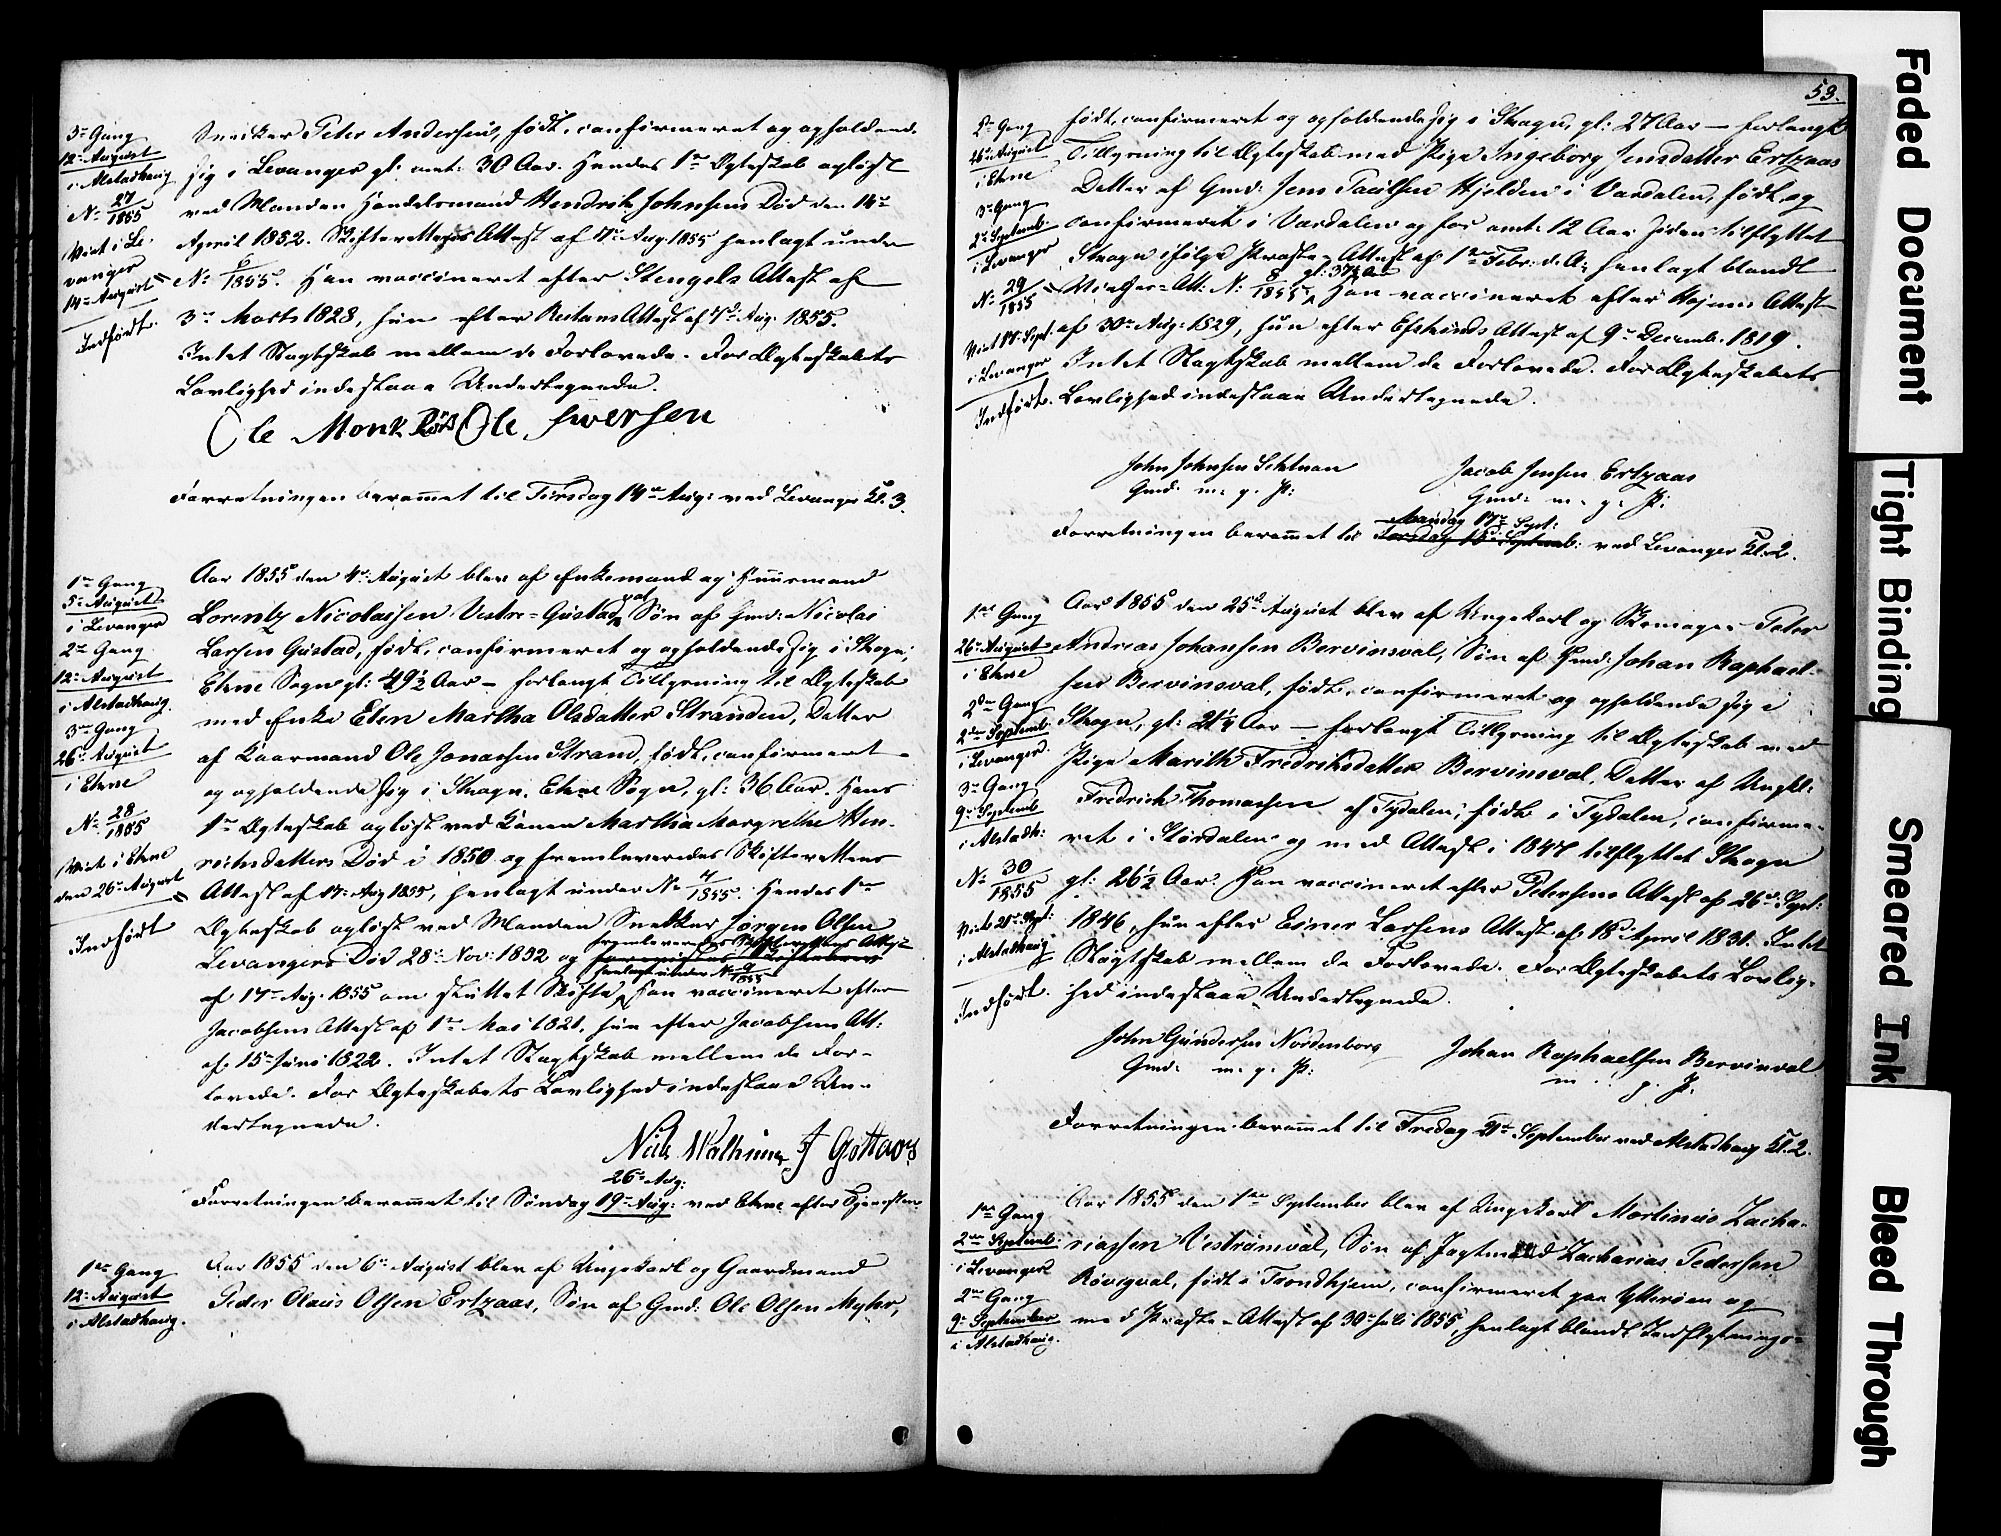 3die Gang
12te August
i Alstadhaug
No 27/1855
Viet i Le-
vanger
14de August
Indført.
Snedker Peter Andersen, født, confirmeret og opholdende
sig i Levanger gl: omt: 30 Aar. Hendes 1ste Ægteskab opløst
ved Manden Handelsmand Hendrik Johnsens Død den 14de
April 1852. Skifterettens Attest af 11te Aug. 1855 henlagt under
No 6/1855. Han vaccineret efter Stengels Attest af
3die Marts 1828, hun efter Reitans Attest af 7de Aug. 1855.
Intet Slægtskab mellem de Forlovede. For Ægteskabets
Lovlighed indestaae Undertegnede.
Ole Monk Røis Ole Iversen
Forretningen berammet til Tirsdag 14de Aug: ved Levanger Kl. 3.
1ste Gang
5te August
i Levanger
2den Gang
12te August
i Alstadhaug.
3die Gang
26de August
i Ekne
No 28/1855
Viet i Ekne
den 26de August
Indført
Aar 1855 den 4de August blev af Enkemand og Huusmand
Lorentz Nicolaissen Vestre-Gustadval Søn af Gmd: Nicolai
Larsen Gustad, født, confirmeret og opholdende sig i Skogn,
Ekne Sogn gl: 49½ Aar – forlangt Tillysning til Ægteskab
med Enke Elen Martha Olsdatter Stranden, Datter
af Kaarmand Ole Jonassen Strand, født, confirmeret
og opholdende sig i Skogn, Ekne Sogn, gl: 36 Aar. Hans
1ste Ægteskab opløst ved Konen Martha Margrethe Hen-
richsdatters Død i 1850 og fremleveredes Skifterettens
Attest af 17de Aug 1855, henlagt under No 7/1855. Hendes 1ste
Ægteskab opløst ved Manden Snedker Jørgen Olsen
fremleveredes Skifterettens Attest
Levangers Død 28de Nov: 1852 og
henlagt under No 9/1855
af 17de Aug. 1855 om sluttet Skifte, Han vaccineret efter
Jacobsens Attest af 1ste Mai 1821, hun efter Jacobsens Att:
af 15de Juni 1822. Intet Slægtskab mellem de For-
lovede. For Ægteskabets Lovlighed indestaae Un-
dertegnede.
Niels Walhunn J Gottaas
26de Aug:
Forretningen berammet til Søndag 19de Aug: ved Ekne efter Tjenesten.
1ste Gang
12te August
i Alstadhaug.
Aar 1855 den 6te August blev af Ungekarl og Gaardmand
Peder Olaus Olsen Ertzaas, Søn af Gmd: Ole Olsen Myhr,
53.
2den Gang
26de August
i Ekne
3die Gang
2den Septemb:
i Levanger
No 29/1855
Viet 17de Sept.
i Levanger
Indført.
født, confirmeret og opholdende sig i Skogn, gl: 27 Aar – forlangt
Tillysning til Ægteskab med Pige Ingeborg Jensdatter Ertzaas
Datter af Gmd: Jens Paulsen Hjelden i Værdalen, født og
confirmeret i Værdalen og for omt: 12 Aar siden tilflyttet
Skogn ifølge Præste-Attest af 1ste Febr: d. A: henlagt blandt
gl: 37½ Aar
Vielses-Att: No: 8/1855, Han vaccineret efter Højems Attest
af 30te Aug: 1829, hun efter Efskinds Attest af 9de Decemb. 1819.
Intet Slægtskab mellem de Forlovede. For Ægteskabets
Lovlighed indestaae Undertegnede.
John Johnsen Schlman Jacob Jensen Ertzaas
Gmd: m. p. P: Gmd: m. p. P:
Mandag 17de Sept:
Forretningen berammet til Torsdag 13de Septemb: ved Levanger Kl. 2.
1ste Gang
26de August
i Ekne
2den Gang
2den Septemb:
i Levanger.
3die Gang
9de Septemb
i Alstadh:
No 30/1855
Viet 21de Sept:
i Alstadhaug
Indført.
Aar 1855 den 25de August blev af Ungekarl og Skomager Peter
Andreas Johansen Bervinsval, Søn af Hmd: Johan Raphael-
sen Bervinsval, født, confirmeret og opholdende sig i
Skogn, gl: 21¼ Aar – forlangt Tillysning til Ægteskab med
Pige Marith Fredriksdatter Bervinsval, Datter af Ungkl:
Fredrich Thomassen af Tydalen, født i Tydalen, confirme-
ret i Stördalen og med Attest i 1847 tilflyttet Skogn
gl: 26½ Aar. Han vaccineret efter Petersens Attest af 26de Sept:
1846, hun efter Esner Larsens Attest af 18de April 1831. Intet
Slægtskab mellem de Forlovede. For Ægteskabets Lovlig-
hed indestaae Undertegnede.
John Gundersen Nordenborg Johan Raphaelsen Bervinval
Gmd: m. p. P: m. p. P.
Forretningen berammet til Fredag 21de September ved Alstadhaug Kl. 2.
1ste Gang
2den Septemb:
i Levanger
2den Gang
9de September
i Alstadhaug.
Aar 1855 den 1ste September blev af Ungekarl Martinus Zacha-
riassen Vestrumval, Søn af Jagtmand Zacharias Pedersen
Røvigval, født i Trondhjem, confirmeret paa Ytterøen og
med Præste-Attest af 30te Juli 1855, henlagt blandt Indflytnings-
Faded Document
Tight Binding
Smeared Ink
Bleed Through